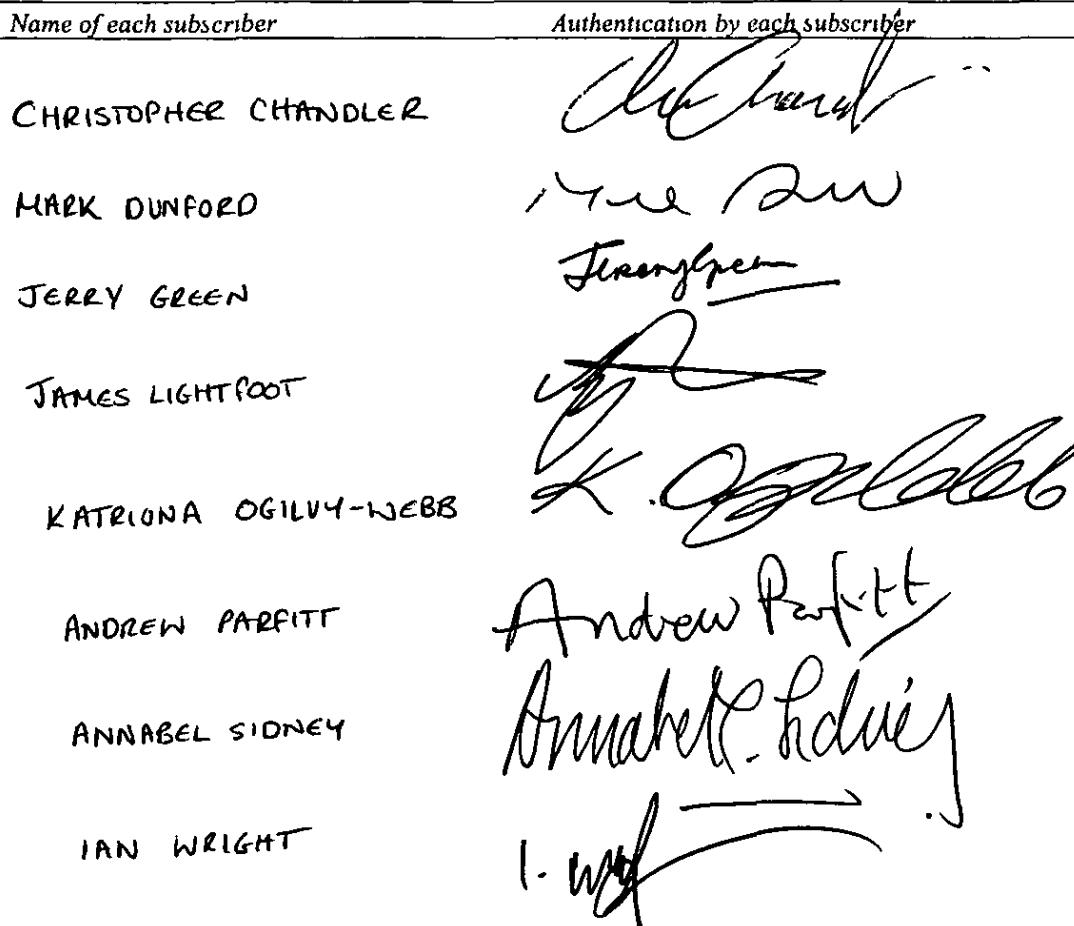 Name of each subscriber Authentication by each subscriber
CHRISTOPHER CHANDLER
MARK DUNFORD
JERRY GREEN Jeremy Green
JAMES LIGHTFOOT
KATRIONA OGILVY-WEBB K.
ANDREW PARFITT Andrew Parfitt
ANNABEL SIDNEY Annabel C. Sidney
IAN WRIGHT I.